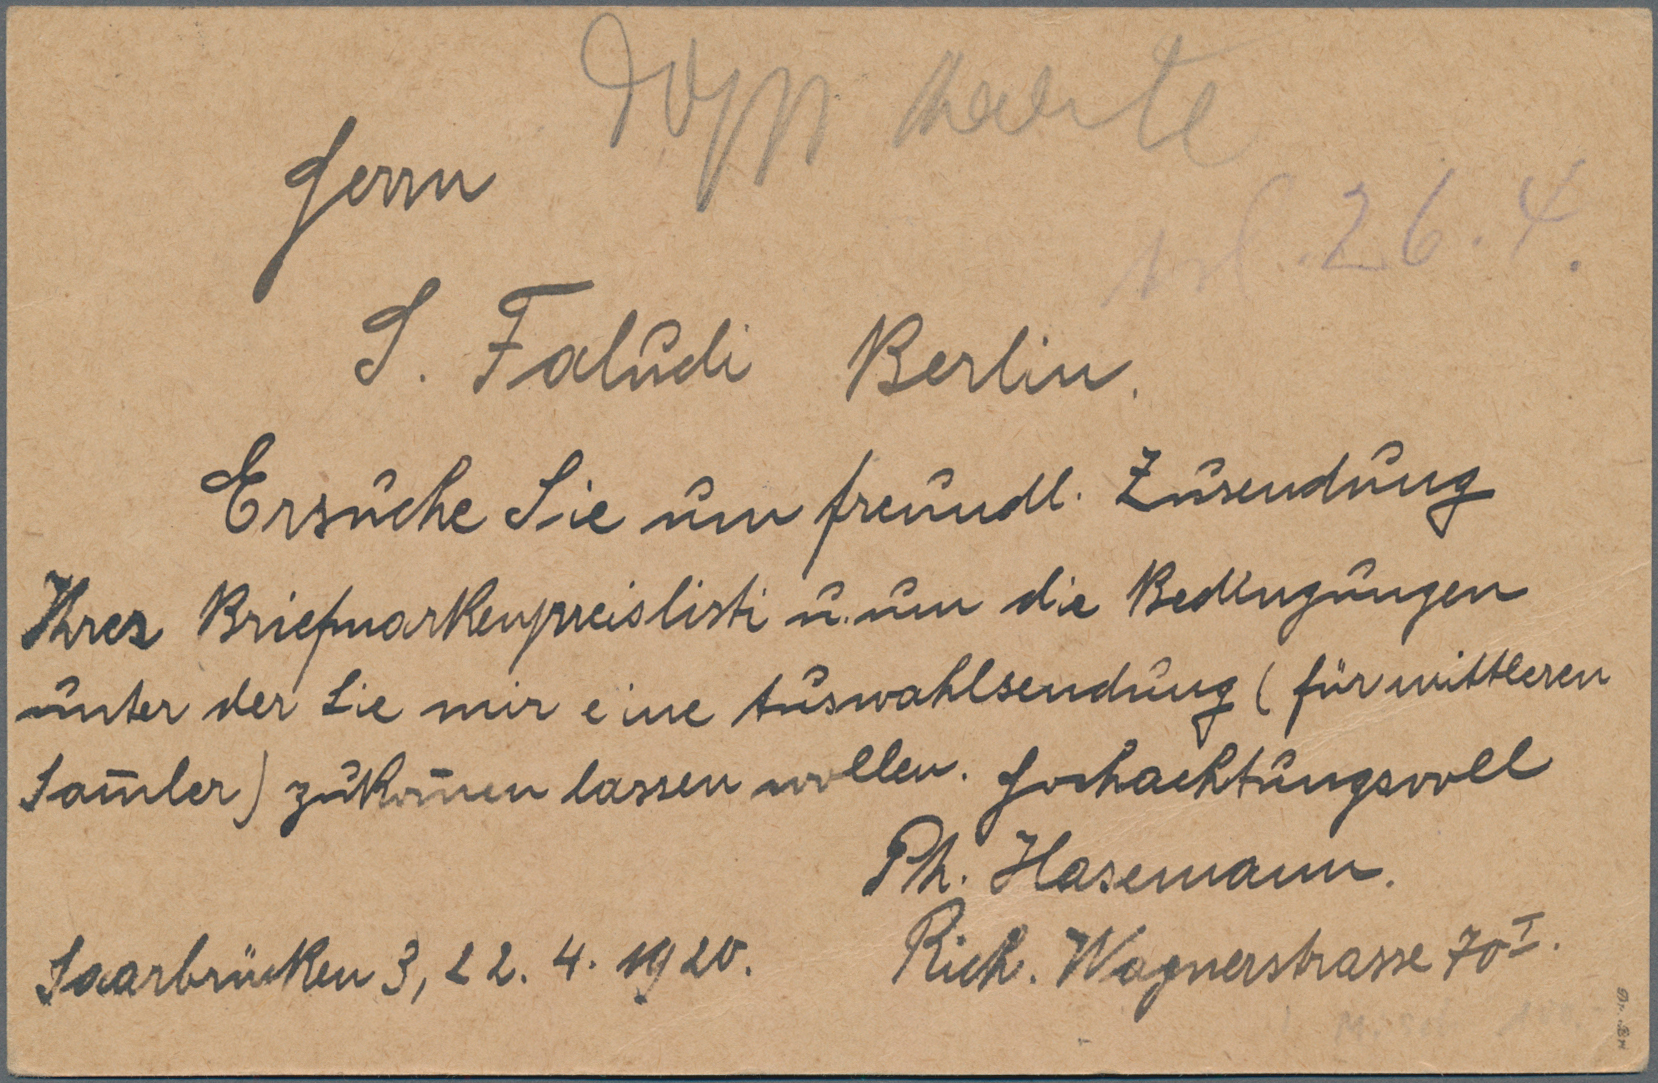 Herrn
S. Faludi Berlin.
Ersuche Sie um freundl. Zusendung
Ihrer Briefmarkenpreisliste u. um die Bedingungen
unter der Sie mir eine Auswahlsendung (für mittleren
Sam̄ler) zukom̄en lassen wollen. Hochachtungsvoll
Ph. Hasemann.
Saarbrücken 3, 22. 4. 1920. Rich. Wagnerstrasse 70 I.
26.4.